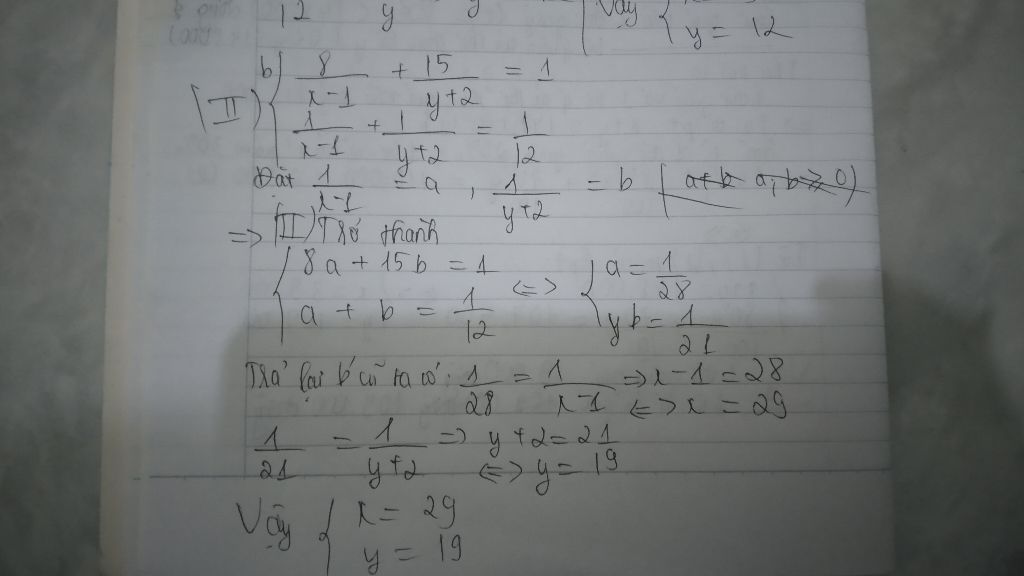 12 y y Vậy { y = 12
b) 8/(x-1) + 15/(y+2) = 1
(II) {
1/(x-1) + 1/(y+2) = 1/12
Đặt 1/(x-1) = a , 1/(y+2) = b
=> (II) Trở thành
{ 8a + 15b = 1 <=> { a = 1/28
a + b = 1/12 b = 1/21
Trả lại b' cũ ta có: 1/28 = 1/(x-1) => x-1 = 28
<=> x = 29
1/21 = 1/(y+2) => y+2 = 21
<=> y = 19
Vậy { x = 29
y = 19